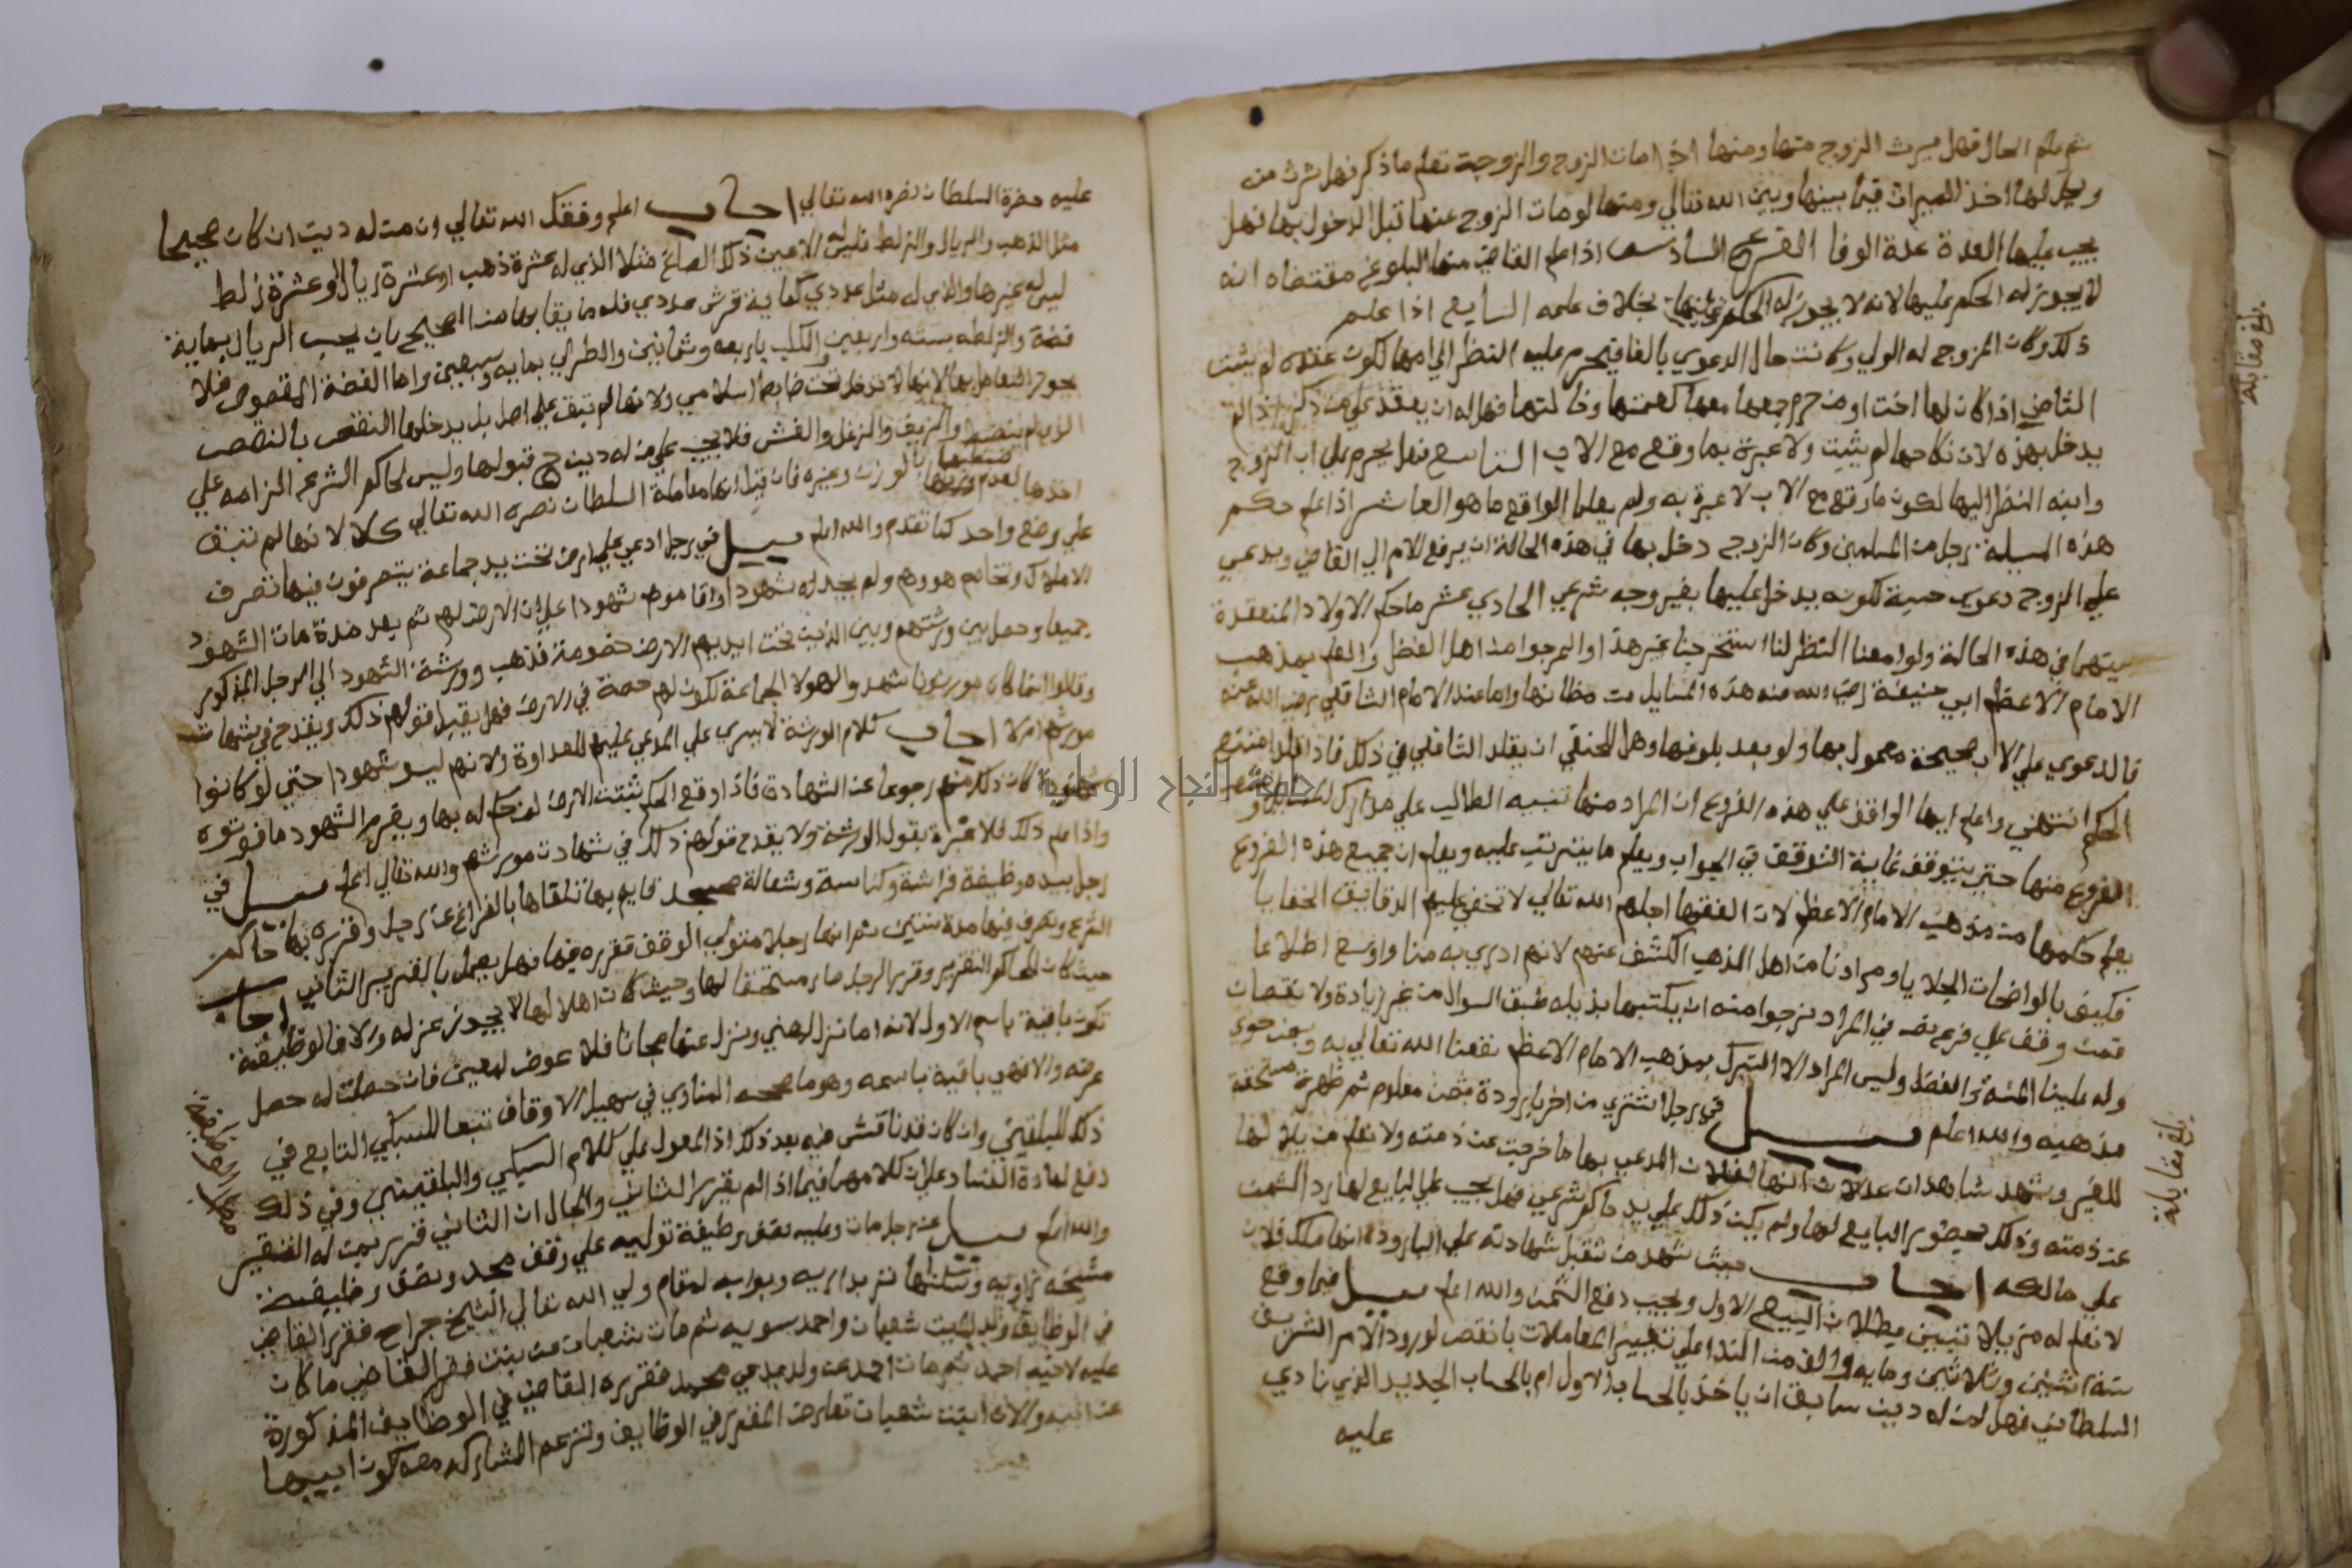 ثم علم الحال فهل يرث الزوج منها ومنها اذا مات الزوج والزوجة تعلم ما ذكر فهل ترث منه
ويحل لها اخذ الميراث فيما بينها وبين الله تعالي ومنها لو مات الزوج عنها قبل الدخول بها فهل
يجب عليها العدة عدة الوفا الفرع السادس اذا علم القاضي منها البلوغ مقتضاه انه
لا يجوز له الحكم عليها لانه لا يجوز له الحكم بخلاف علمه السابع اذا علم
ذلك وكان المزوج له الولي وكانت حال الدعوي بالغا فيحرم عليه النظر الي امها لكون عقده لم يثبت
الثامن اذا كان لها اخت او من حرم جمعها معها كعمتها وخالتها فهل له ان يعقد علي من ذكر اذا لم
يدخل بهذه لان نكاحها لم يثبت ولا عبرة بما وقع مع الاب التاسع فهل يحرم علي اب الزوج
وابنه النظر اليها لكون ما وقع مع الاب لا عبرة به ولم يعلما الواقع ما هو العاشر اذا علم حكم
هذه المسيلة رجل من المسلمين وكان الزوج دخل بها في هذه الحالة ان يرفع الامر الي القاضي ويدعي
علي الزوج دعوي حسبة لكونه يدخل عليها بغير وجه شرعي الحادي عشر ما حكم الاولاد المنعقدة
بينهما في هذه الحالة ولو امعنا النظر لنا استخرجنا غير هذا والمرجوا من اهل الفضل والعلم بمذهب
الامام الاعظم ابي حنيفة رضي الله عنه هذه المسايل من مظانها واما عند الامام الشافعي رضي الله عنه
فالدعوي علي الاب صحيحة معمول بها ولو بعد بلوغها وهل للحنفي ان يقلد الشافعي في ذلك فاذا قلد امتنع
الحكم انتهي واعلم ايها الواقف علي هذه الفروع ان المراد منها تنبيه الطالب علي مدارك
الفروع منها حتي يتوقف غاية التوقف في الجواب ويعلم ما يترتب عليه ويعلم ان جميع هذه الفروع
يعلم حكمها من مذهب الامام الاعظم لان الفقها اجلهم الله تعالي لا تخفي عليهم الدقايق الخفايا
فكيف بالواضحات الجلايا ومرادنا من اهل المذهب الكشف عنهم لانهم ادري به منا واوسع اطلاعا
فمن وقف علي فرع يفي في المراد نرجوا منه ان يكتبها بذيله طبق السوال من غير زيادة ولا نقصان
وله علينا المنة والفضل وليس المراد الا التبرك بمذهب الامام الاعظم نفعنا الله تعالي به وبمن حوي
مذهبه والله اعلم سيل في رجل اشتري من اخر بارودة بثمن معلوم ثم ظهرت مستحقة
للغير وشهد شاهدان عدلان انها لفلان المدعي بها ما خرجت عن ذمته ولا نعلم من يلا لها
عن ذمته وذلك بحضور البايع لها ولم يكن ذلك علي يد حاكم شرعي فهل يجب علي البايع لها رد الثمن
علي مالكه اجاب حيث شهد من تقبل شهادته علي البارودة انها ملك فلان
لا نعلم له مزيلا تبين بطلان البيع الاول ويجب دفع الثمن والله اعلم سيل فيما وقع
سنة اثنين وثلاثين ومايه والف من الندا علي تغيير المعاملات بانقص لورود الامر الشريف
السلطاني فهل لمن له دين سابق ان ياخذ بالحساب الاول ام بالحساب الجديد الذي نادي
عليه
بلغ مقابلة
بلغ مقابلة
عليه حضرة السلطان نصره الله تعالي اجاب اعلم وفقك الله تعالي ان من له دين ان كان صحيحا
مثل الذهب والريال والزلط فليس له الا عين ذلك الصاغ مثلا الذي له عشرة ذهب او عشرة ريال او عشرة زلط
ليس له غيرها والذي له مثل عددي كماية قرش عددي فله ما يقابلها من الصحيح بان يحسب الريال بماية
فضة والزلطه بسته واربعين والكلب باربعه وثمانين والطرلي بمايه وسبعين واما الفضة المقصوص فلا
يجوز التعامل بها لانها لا تدخل تحت ضابط اسلامي ولانها لم تبق علي اصل بل يدخلها النقص بالنقص
الذي لم ينضبط والزيف والزغل والغش فلا يجب علي من له دين قبولها وليس لحاكم الشرع الزامه علي
اخذها لعدم ضبطها بالوزن وغيره فان قيل انها معاملة السلطان نصره الله تعالي كلا لانها لم تبق
علي وضع واحد كما تقدم والله اعلم سيل في رجل ادعي علي ارض تحت يد جماعة يتصرفون فيها تصرف
الاملاك ونخاهم هو وهم ولم يجد له شهودا واقاموا شهودا علي ان الارض لهم ثم بعد مدة مات الشهود
جميعا وحصل بين ورثتهم وبين الذين تحت ايديهم الارض خصومة فذهب وورثة الشهود الي الرجل المذكور
وقالوا انما كان مورثونا شهدوا لهولا الجماعة لكون لهم حصة في الارض فهل يقبل قولهم ذلك ويقدح في شهادت
مورثهم ام لا اجاب كلام الورثة لا يسري علي المدعي عليهم للعداوة ولانهم ليسو شهودا حتي لو كانوا
شهودا كان ذلك منهم رجوعا عن الشهادة فاذا وقع الحكم ثبتت الارض لمن حكم له بها ويغرم الشهود ما فوتوه
واذا علم ذلك فلا عبرة بقول الورثة ولا يقدح قولهم ذلك في شهادت مورثهم والله تعالي اعلم سيل في
رجل بيده وظيفة فراشة وكناسة وشعالة مسجد قايم بها تلقاها بالفراغ عن رجل وقرره بها حاكم
الشرع وتصرف فيها مدة سنتين ثم انها رجلا متولي الوقف قرره فيها فهل يعمل بالتقرير الثاني اجاب
حيث كان للحاكم التقرير وقرر الرجل صار مستحقا لها وحيث كان اهلا لها لا يجوز عزله والا فالوظيفة
تكون باقية باسم الاول لانه اما نزل لمعني ونزل عنها مجانا فلا عوض لمعين فان حصلت له حصل
غرضه والا فهي باقية باسمه وهو ما صححه المناوي في تسهيل الاوقاف تبعا للسبكي التابع في
ذلك للبلقيني وان كان قد ناقش فيه بعد ذلك اذ المعول علي كلام السبكي والبلقيني وفي ذلك
دفع لمادة الفساد علي ان كلامهما فيما اذا لم يقرر الثاني والحال ان الثاني قرر بمن له التقرير
والله اعلم سيل عن رجل مات وعليه نصف وظيفة توليه علي وقف محمد ونصف وظيفة
مشيخة زاويه بداريه وبوابه لمقام ولي الله تعالي الشيخ جراح فقرر القاضي
في الوظايف ولديه شعبان واحمد سويه ثم مات شعبان عن بنت فقرر القاضي ما كان
عليه لاخيه احمد ثم مات احمد عن ولد يدعي محمد فقرره القاضي في الوظايف المذكورة
عن ابيه والان ابنت شعبان تعارض المقرر في الوظايف وتزعم المشاركه معه لكون ابيها
مطلب الوظيفة